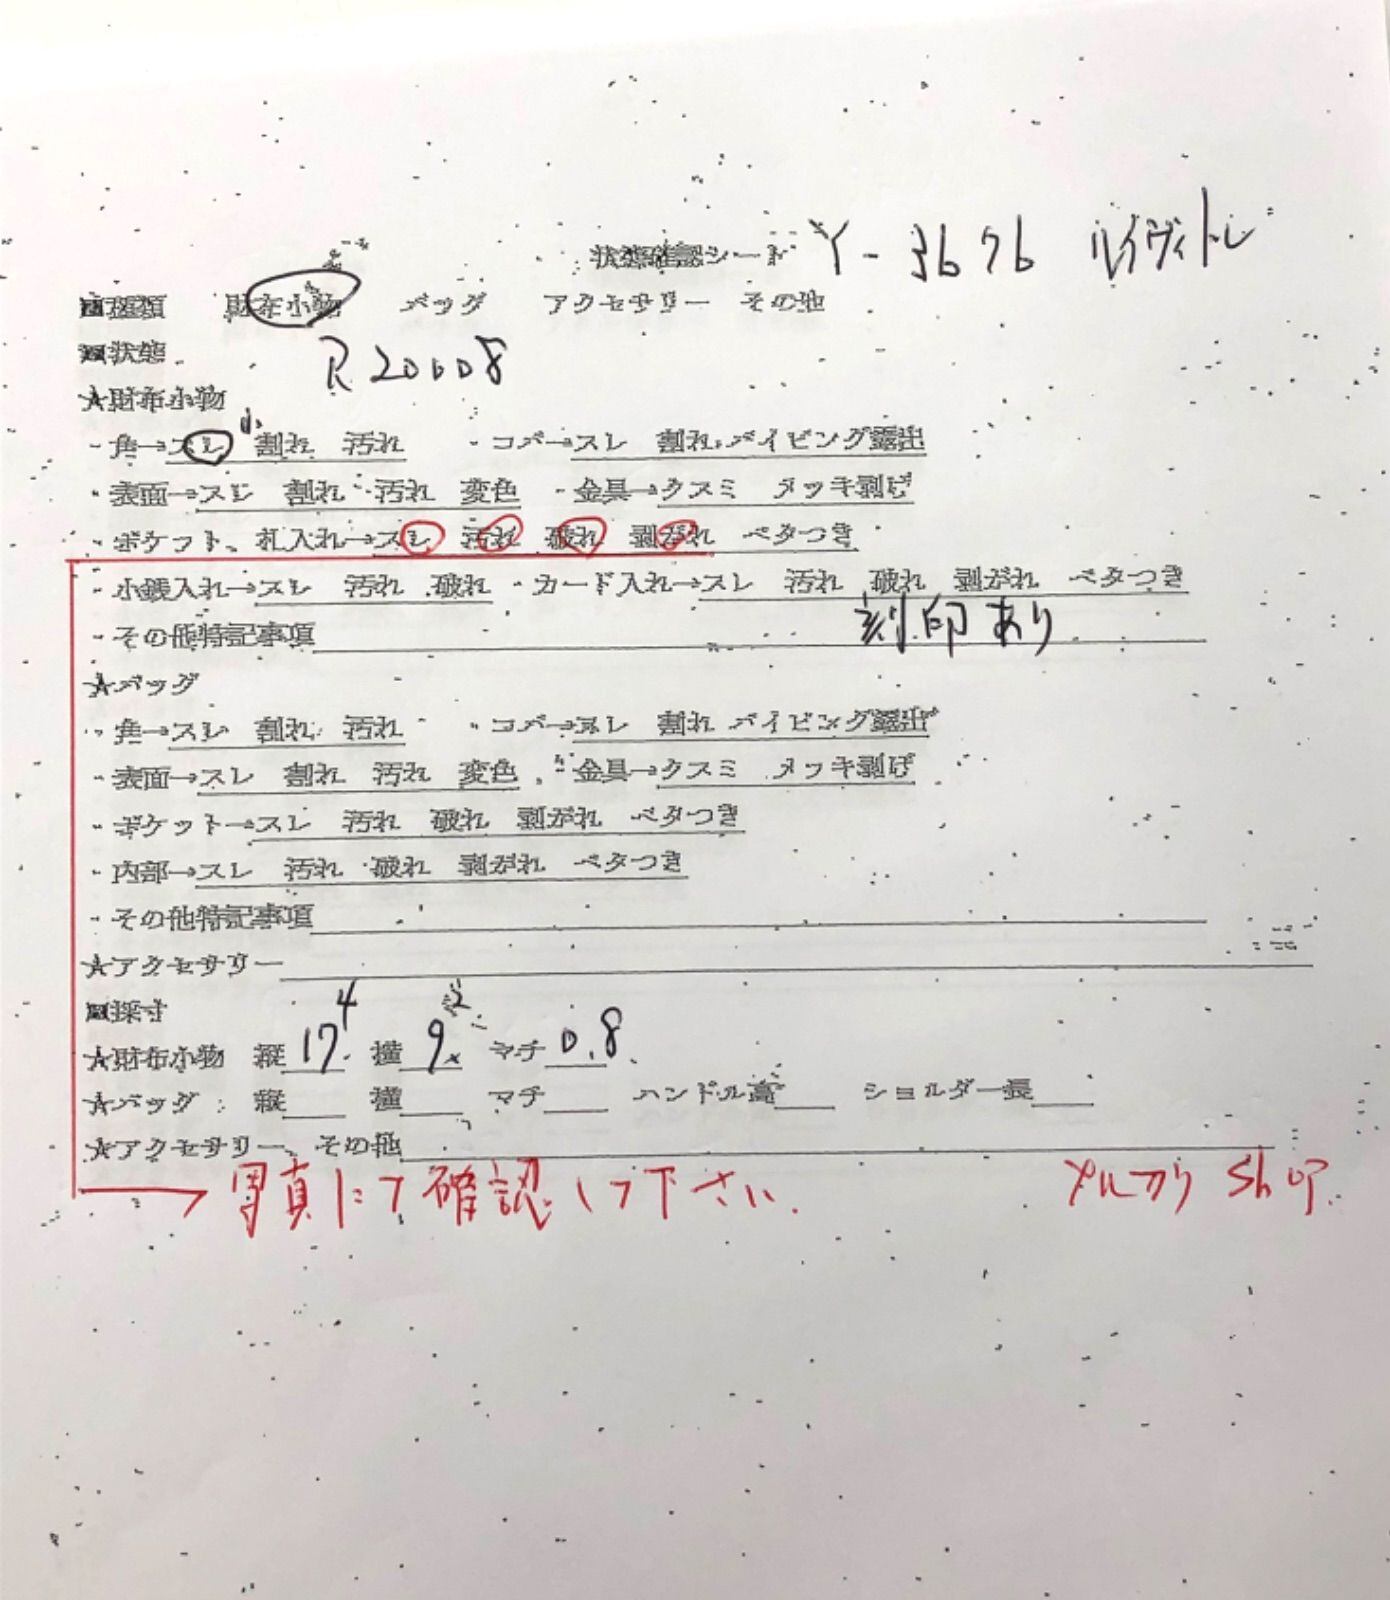 状態確認シート Y-3676 ルイヴィトン
■種類 財布小物 バッグ アクセサリー その他
■状態 R20008
★財布小物
・角→スレ 小 割れ 汚れ ・コバ→スレ 割れ パイピング露出
・表面→スレ 割れ 汚れ 変色 ・金具→クスミ メッキ剥げ
・ポケット、札入れ→スレ 汚れ 破れ 剥がれ ベタつき
・小銭入れ→スレ 汚れ 破れ ・カード入れ→スレ 汚れ 破れ 剥がれ ベタつき
・その他特記事項 刻印あり
★バッグ
・角→スレ 割れ 汚れ ・コバ→スレ 割れ パイピング露出
・表面→スレ 割れ 汚れ 変色 ・金具→クスミ メッキ剥げ
・ポケット→スレ 汚れ 破れ 剥がれ ベタつき
・内部→スレ 汚れ 破れ 剥がれ ベタつき
・その他特記事項
★アクセサリー
■採寸
★財布小物 縦17.4 横9.2 マチ0.8
★バッグ 縦 横 マチ ハンドル高 ショルダー長
★アクセサリー、その他
→写真にて確認して下さい. メルカリShop.